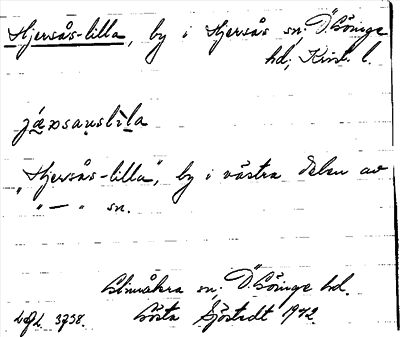 Hjersås-lilla, by i Hjersås sn. Ö. Göinge
hd; Krist. l.
jæ̱rsauslila
"Hjersås-lilla", by i västra delen av
" — " sn.
Glimåkra sn; Ö. Göinge hd.
LGL 3758. Gösta Sjöstedt 1942